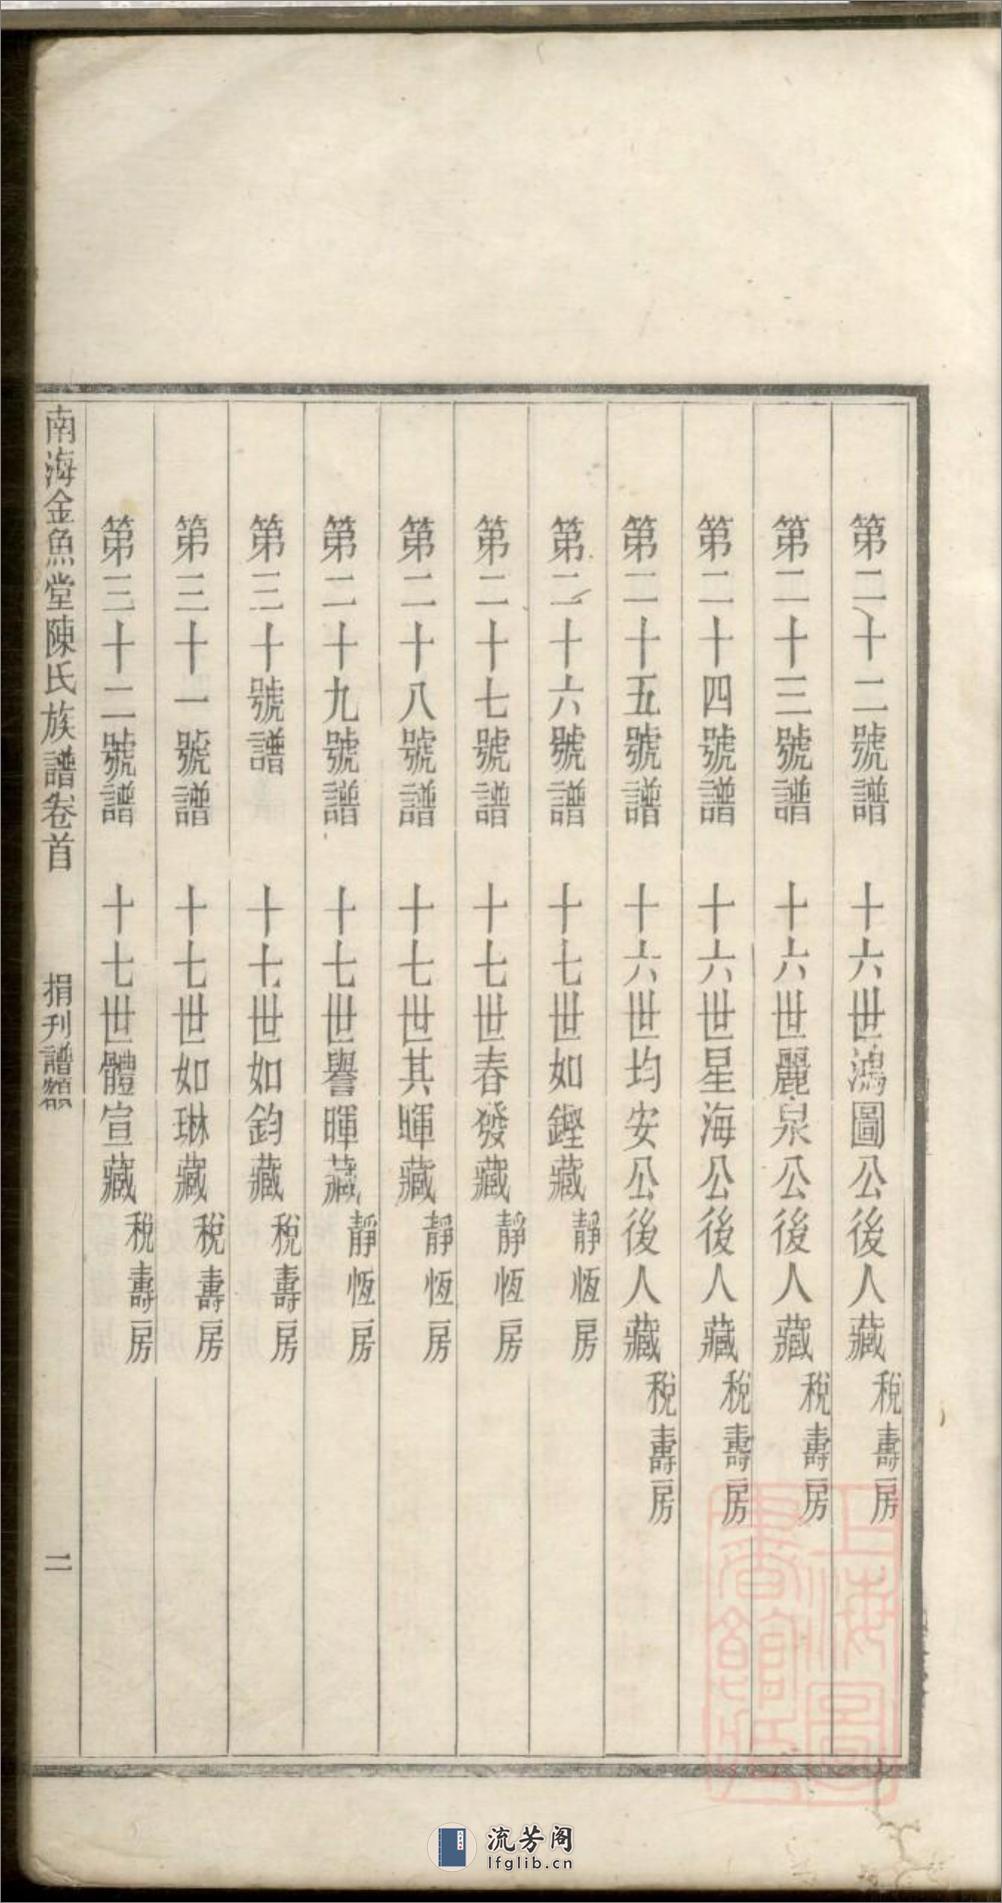 第二十二號譜　十六世鴻圖公後人藏稅壽房
第二十三號譜　十六世麗泉公後人藏稅壽房
第二十四號譜　十六世星海公後人藏稅壽房
第二十五號譜　十六世均安公後人藏稅壽房
第二十六號譜　十七世如鏗藏靜恆房
第二十七號譜　十七世春發藏靜恆房
第二十八號譜　十七世其暉藏靜恆房
第二十九號譜　十七世譽暉藏靜恆房
第三十號譜　十七世如鈞藏稅壽房
第三十一號譜　十七世如琳藏稅壽房
第三十二號譜　十七世體宣藏稅壽房
南海金魚堂陳氏族譜卷首　捐刊譜額　二
上海圖書館藏
流芳阁
lfglib.cn